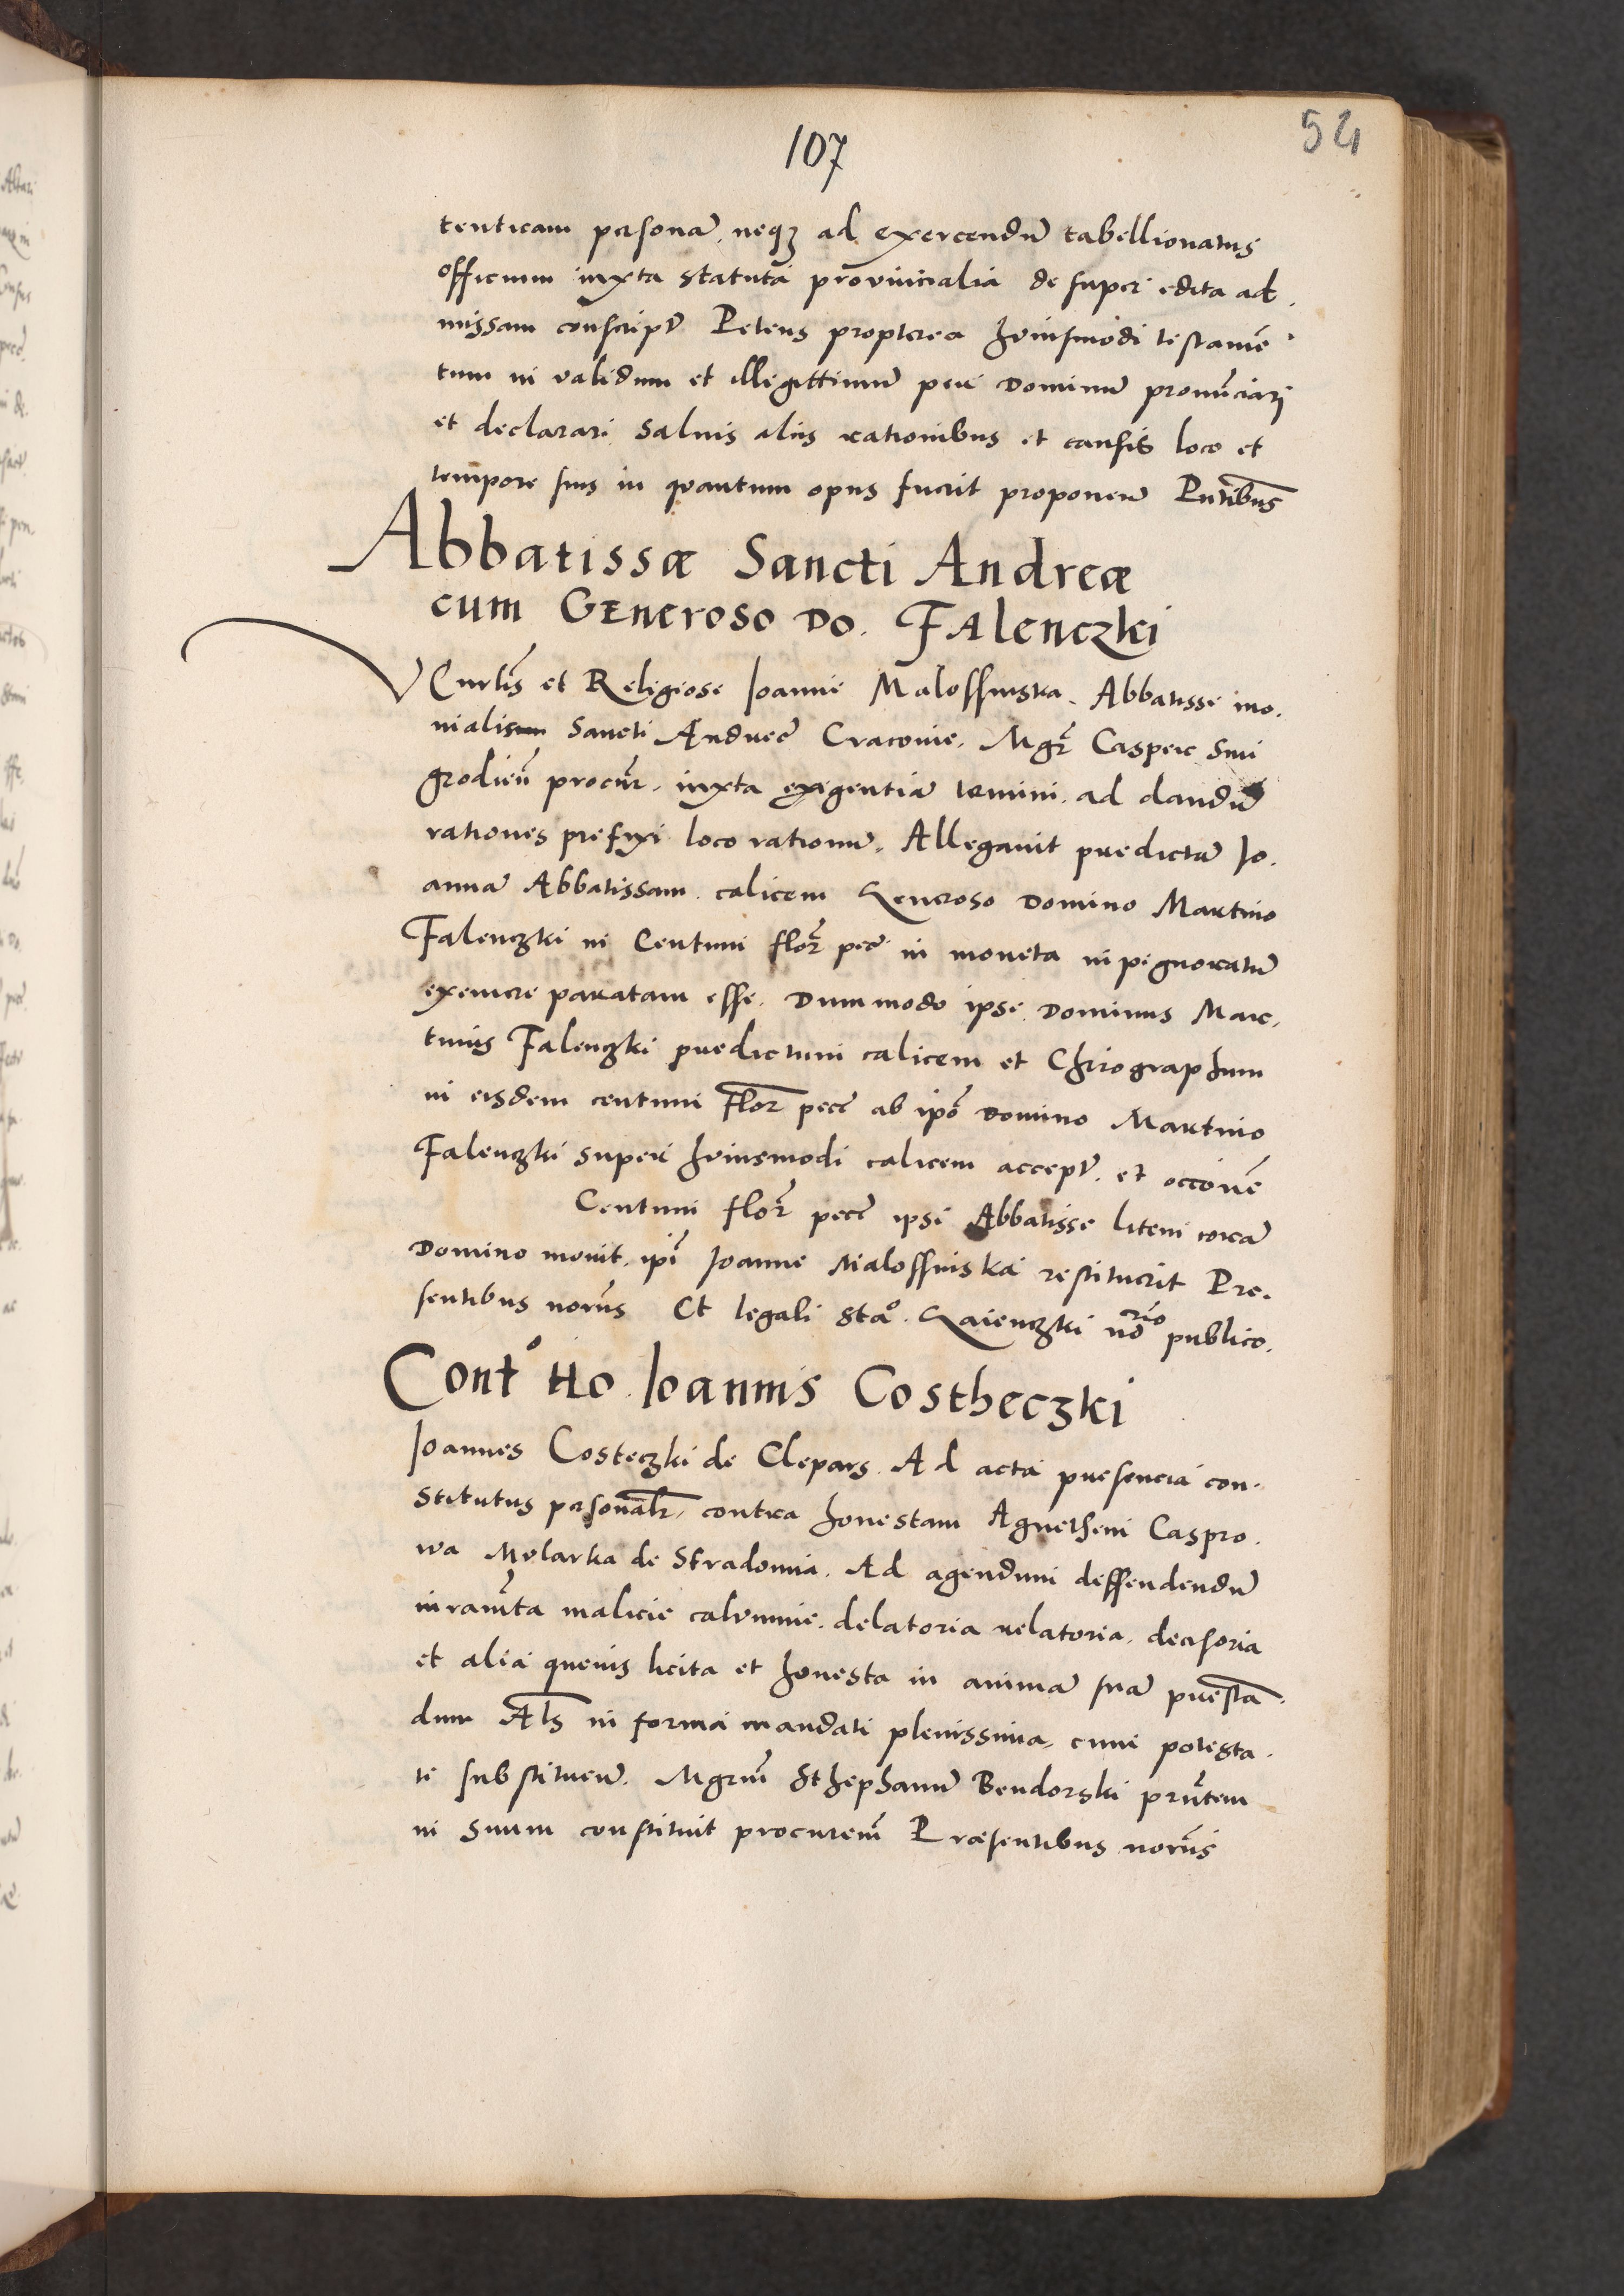 107
54
tenticam personā. neqȝ ad exercendū tabellionatus
officium iuxta statuta provincialia de super edita ad.
missam conscriptū Petens propterea huiusmodi testamē
tum in validum et illegittimū per Dominū pronūciari
et declarari Salvis aliis rationibus et causis loco et
tempore suis in quantum opus fuerit proponen̄ Pn̄tibus
Abbatissæ Sancti Andreæ
cum Generoso Do. Falenczki
et Religiose Joanne Malossinska. Abbatisse mo.
nialium Sancti Andree Cracovie. Mgr̄ Casper Smi
grodien̄ procur̄. iuxta exigentiā termini. ad dandū
rationes prefixi loco rationū. Allegavit predictā Jo.
annā Abbatissam. calicem Generoso Domino Martino
Falenczki in Centum flor̄ pec̄ in moneta inpignoratū
eximere paratam esse. Dummodo ipse Dominus Mar.
tinus Falenczki predictum calicem et Chirographum
in eisdem centum Flor̄ pec̄ ab ip̄o Domino Martino
Falenczki super huiusmodi calicem accept̄. et occōne
Centum flor̄ pec̄ ipsi Abbatisse litem corā
Domino movit. ip̄i Joanne Malossinska restituerit Pre.
sentibus norūs Et legali Sta͠o. Gaienczki no͠rio publico.
Contº Ho. Joannis Costheczki
Joannes Costeczki de Clepars. Ad acta presencia con.
stitutus personalr̄. contra honestam Agnethem Caspro.
wa Mularka de Stradomia. Ad agendum deffendendū
iuramn̄ta malicie calumnie. delatoria relatoria. decisoria
et alia quevis licita et honesta in animā suā presta.
dum Als̄ in forma mandati plenissima. cum potesta.
te substituen̄. Mgrum̄ Sthephanū Bendorski prn̄tem
in Suum constituit procurem̄ Præsentibus norūs